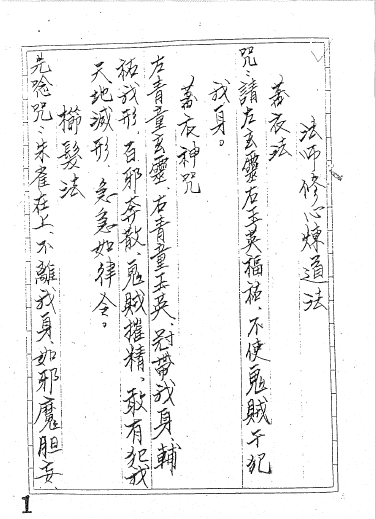 法師修心煉道法
著衣法
咒：請左玄靈右玉英福祐、不使鬼賊干犯
我身。
著衣神咒
左青童玄靈、右青童玉英、冠帶我身、輔
祐我形、百邪奔散、鬼賊摧精、敢有犯我
天地滅形、急急如律令。
櫛髮法
先唸咒：朱雀在上、不離我身、如邪魔胆妄、
1